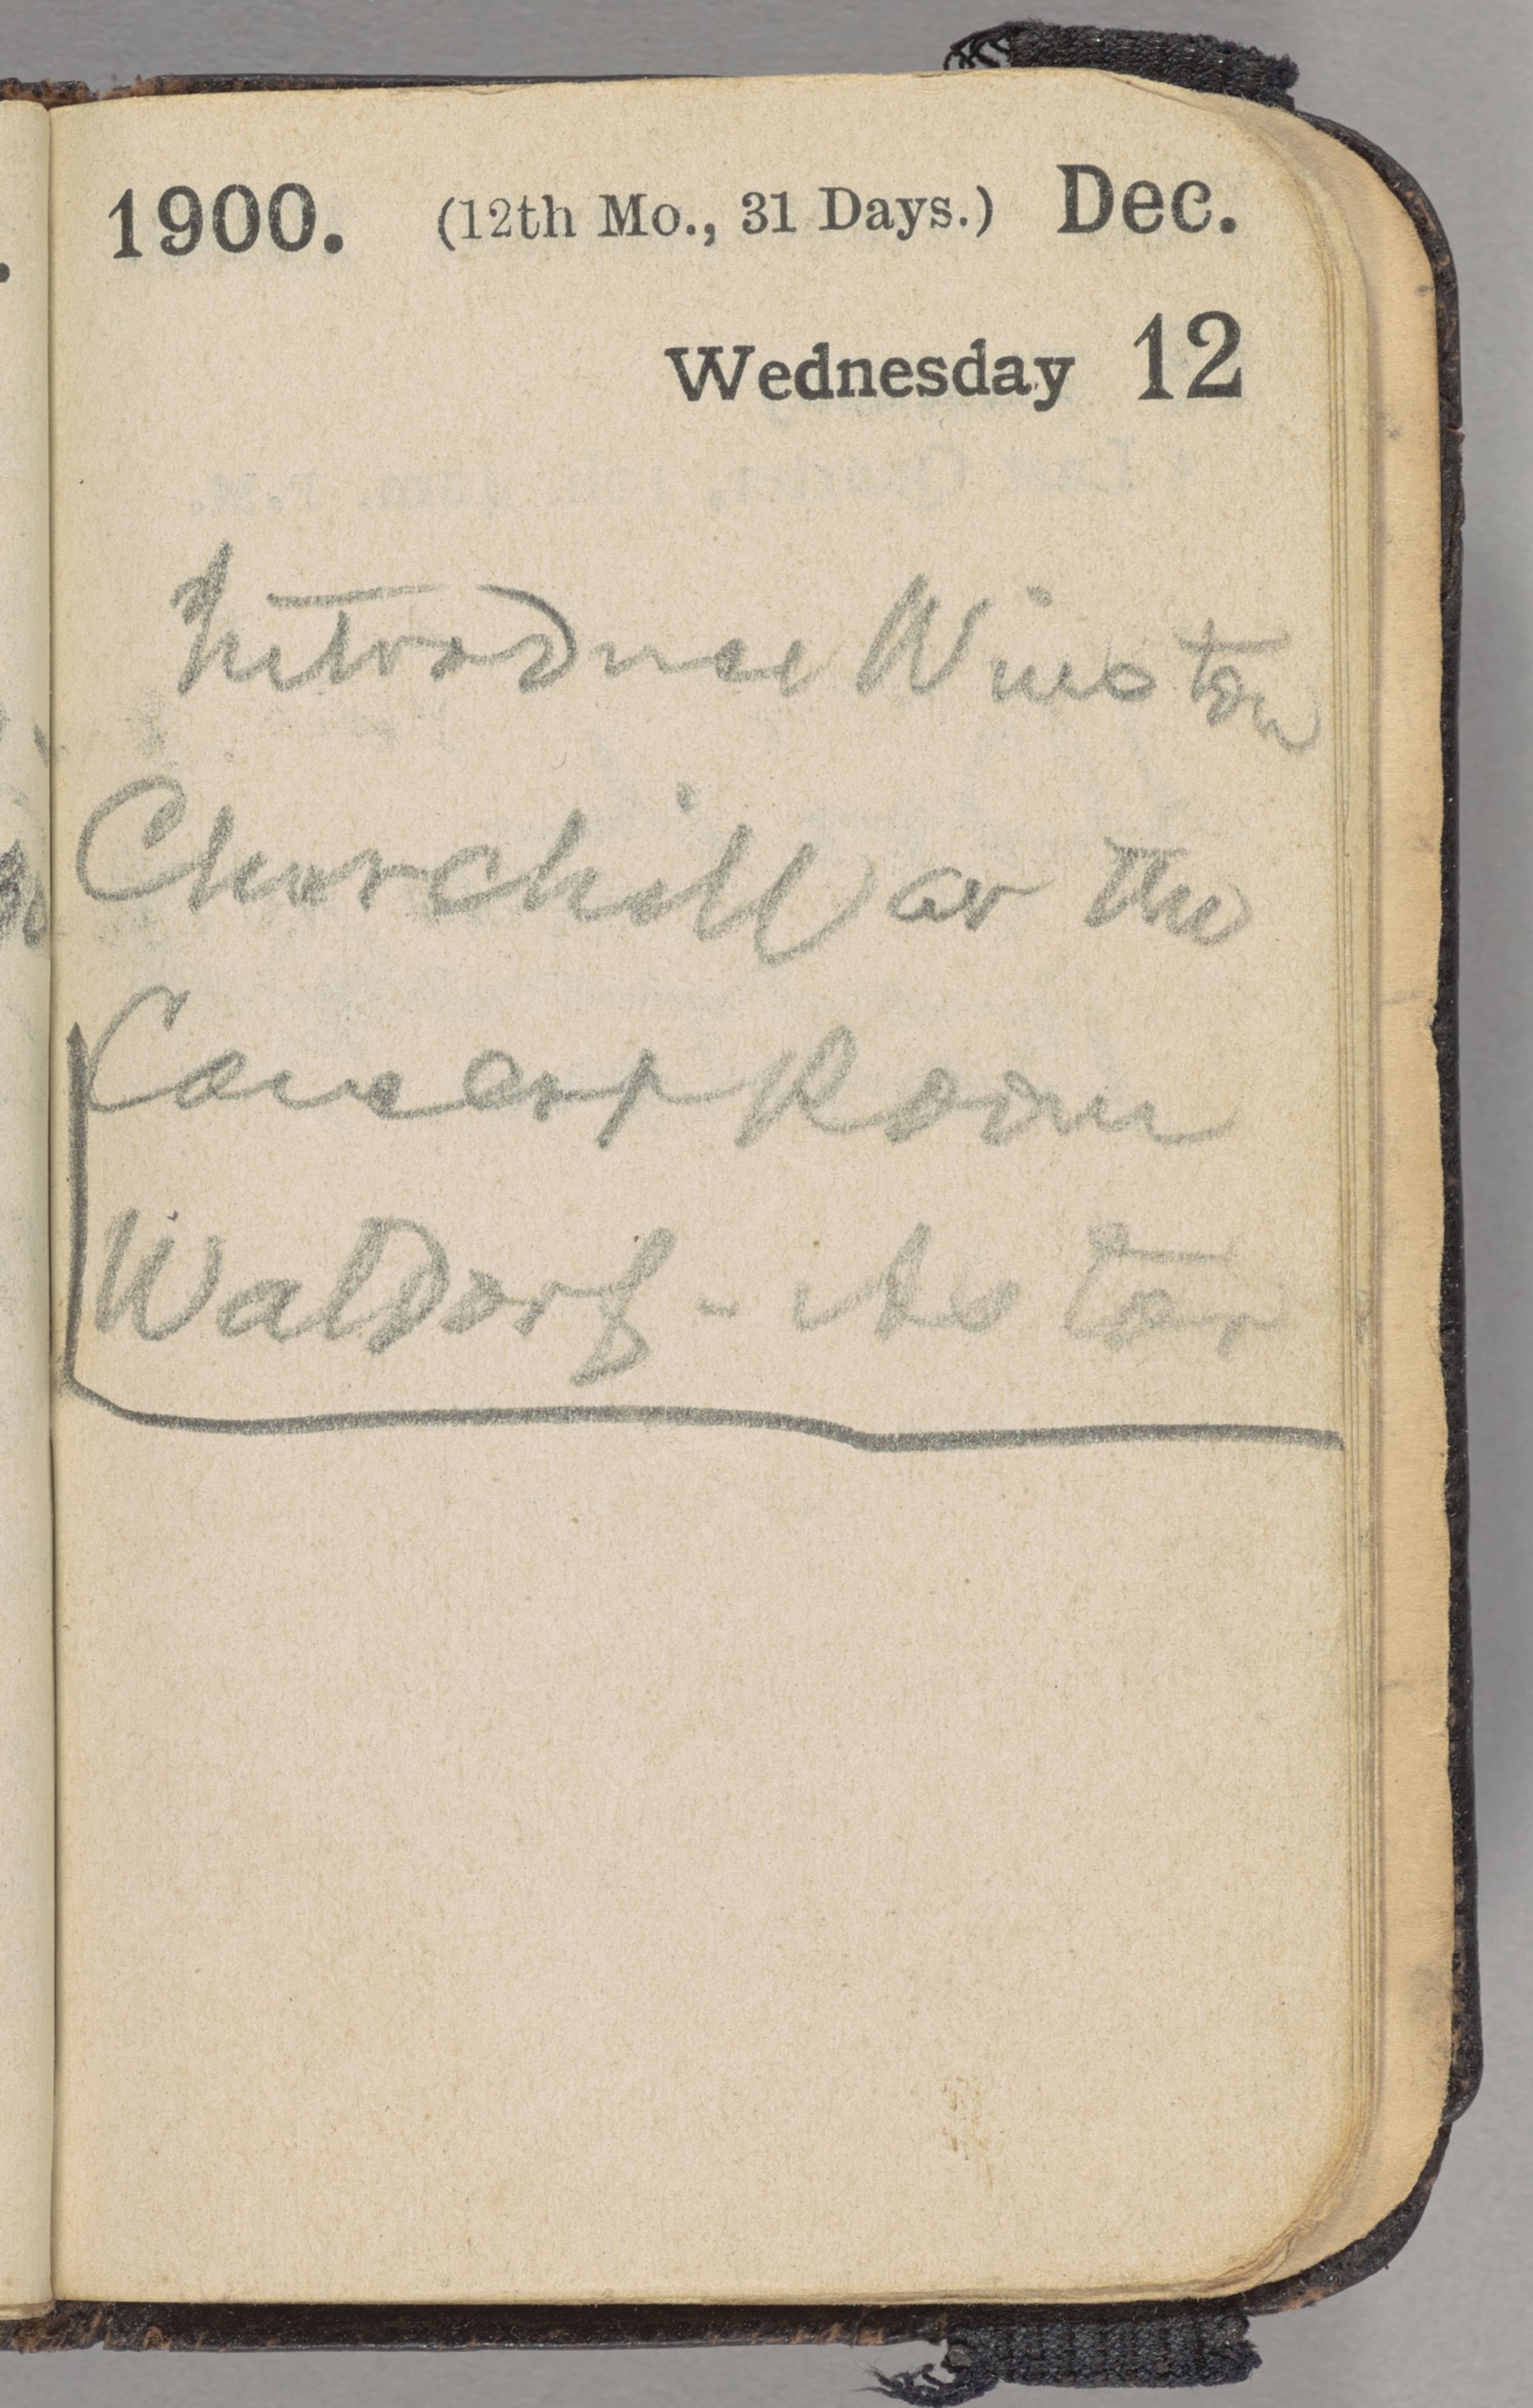 1900. (12th Mo., 31 Days.) Dec.
Wednesday 12
Introduce Winston
Churchill at the
Concert Room
Waldorf-Astor